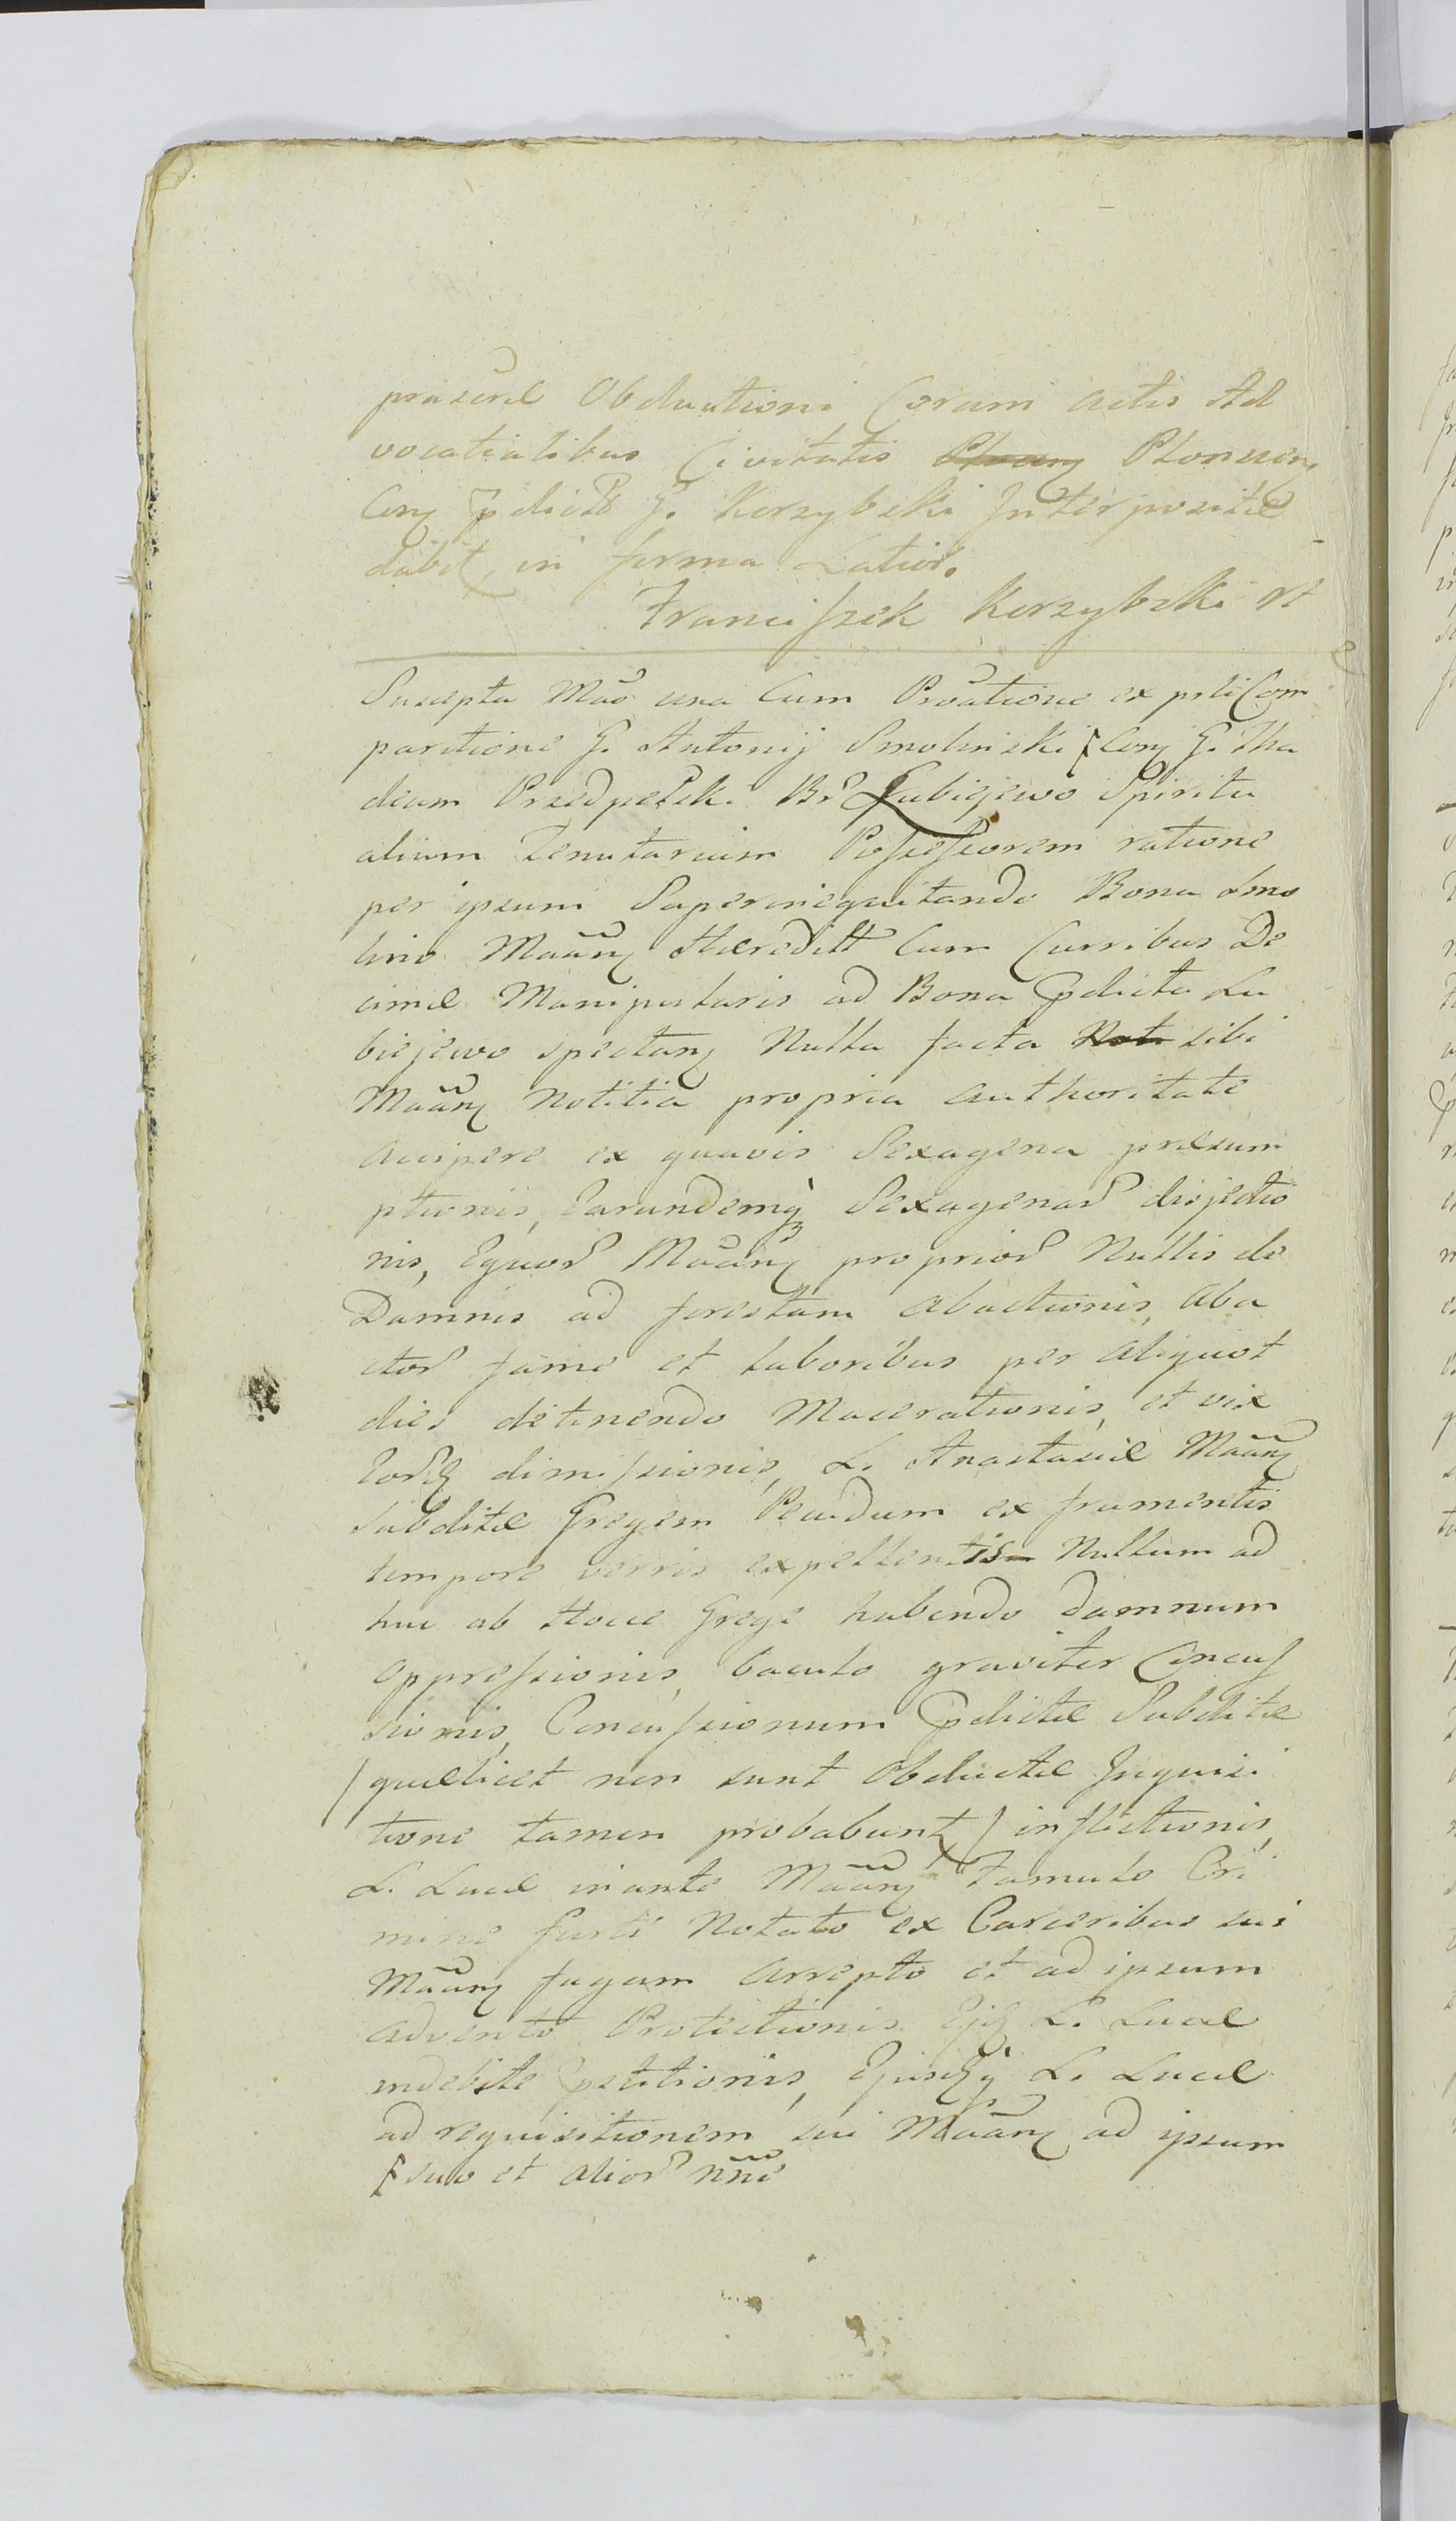 præsente Obductioni Coram actis Ad
vocatialibus Civitatis Plonscen
Con pdictõ G. Korzybski Interpositæ
dabit in forma Latiori.
Franciszek Korzybski
Suscepta Mão una Cum Prõatione ex prli Com
paritione G. Antonij Smolinski Con G. Tha
deum Przedpelski Br̃ Lubiejewo Spiritu
alium Tenutarium Possessorem ratione
per ipsum Superinequitando Bona Smo
lino Mãan Hæreditt Cum Curribus De
cimæ Manipularis ad Bona pdicta Lu
biejewo spectan Nulla facta Noti sibi
Mãan Notitia propria authoritate
accipere ex quavis Sexagena præsum
ptionis, Earundemq Sexagenar disjectio
nis, Equor Mãan proprior Nullis de
Damnis ad forestam abactionis, aba
ctor fame et laboribus per aliquot
dies detinendo Macerationis, et vix
Eord dimissionis, L. Anastasiæ Mãan
Subditæ Gregem Pecudum ex frumentis
tempore verris expellentis Nullum ad
huc ab Hocce Grege habendo damnum
oppressionis, baculo graviter Concus
sionis, Concussionum pdictæ Subditæ
/ quælicet non sunt Obductæ Inquisi
tione tamen probabunt / inflictionis,
L. Lucæ inante Mãan Famulo Cri
mine furti Notato ex Carceribus sui
Mãan fugam arrepto et ad ipsum
advento Protectionis Ejd L. Lucæ
indebite petitionis, Ejusdq L. Lucæ
ad requisitionem sui Mãan ad ipsum
suo et alior nñe